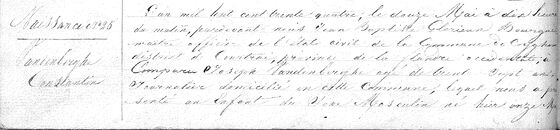 Naissance n° 28
Vandenberghe
Constantin
L'an mil huit cent trente quatre, le douze Mai à dix heures
du matin, pardevant nous Jean Bapt. de Clercan Bourgue
maitre officier de l'état civil de la Commune de
district de Courtrai, province de la flandre occidentale, a
Comparu Joseph Vandenberghe agé de trent sept ans
Journalier domicilié en cette Commune, lequel nous a pré
senté un enfant du Sexe Masculin né hier onze